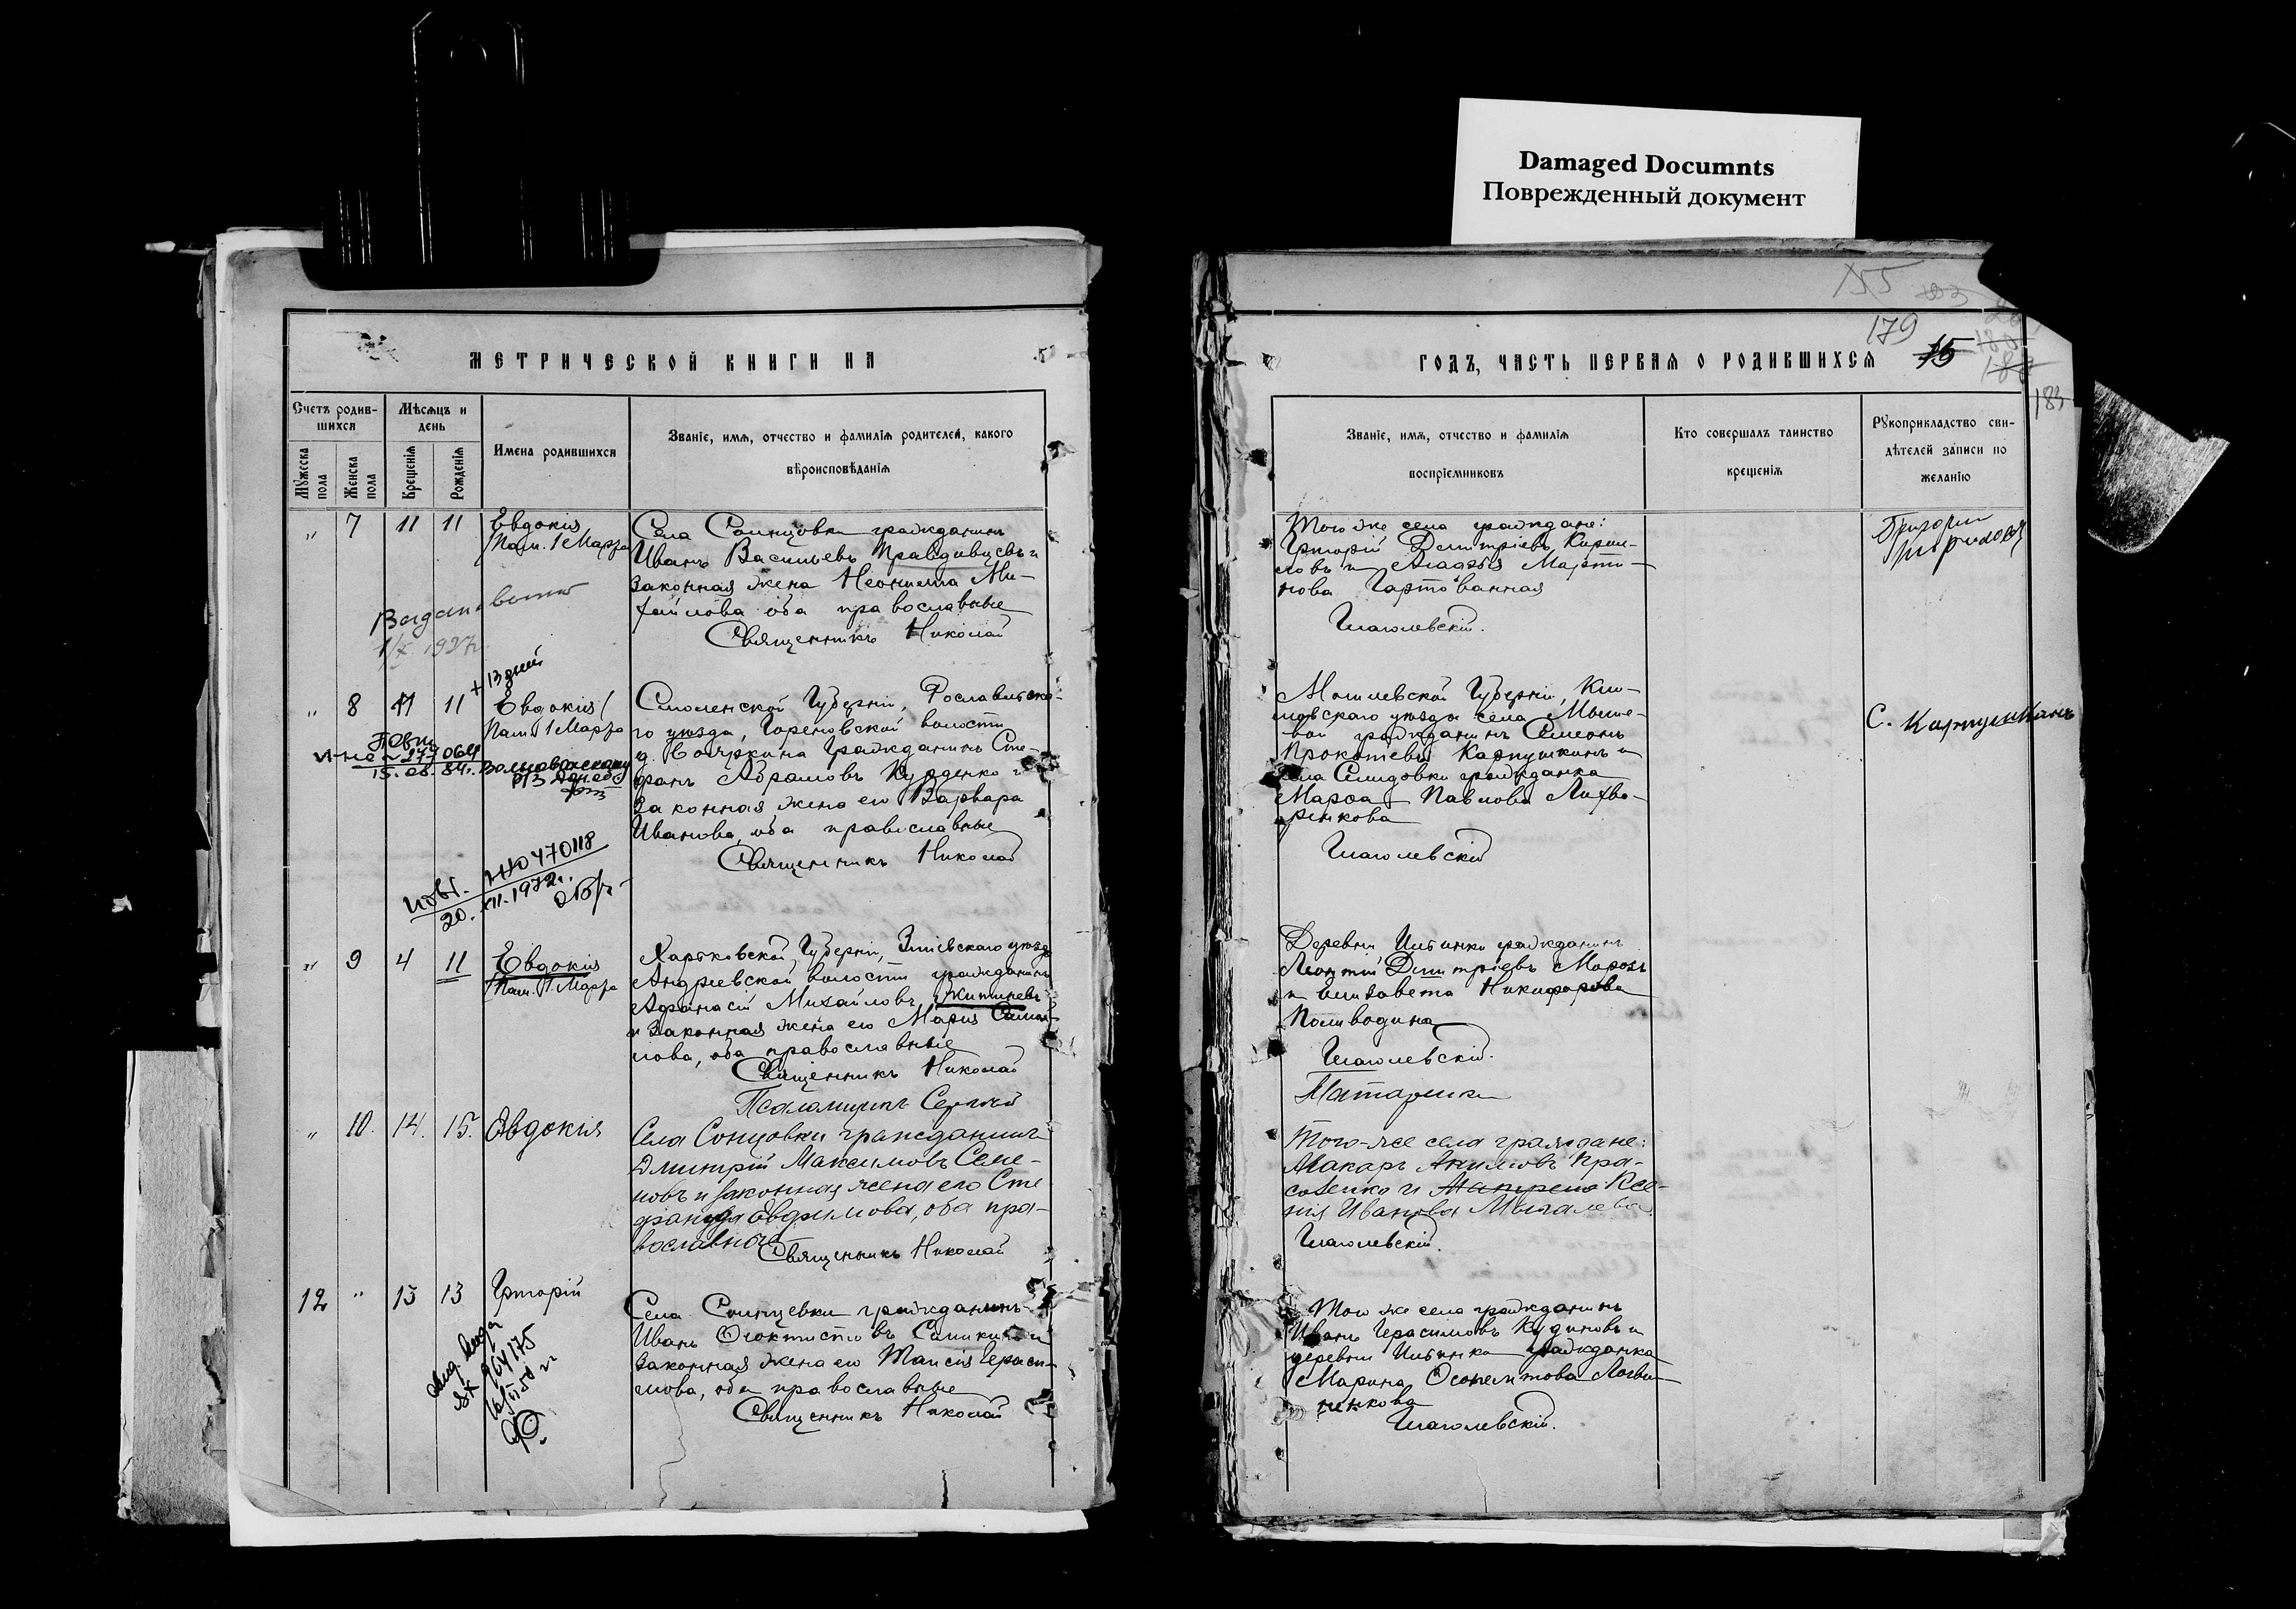 Damaged Documnts
Поврежденный документ
МЕТРИЧЕСКОЙ КНИГИ НА
Счетъ родив-
шихся
Мужеска
пола
Женска
пола
Мѣсяцъ и
день
Крещенія
Рожденія
Имена родившихся
Званіе, имя, отчество и фамилія родителей, какого
вѣроисповѣданія
„ 7 11 11
Евдокія
Пам. 1 Марта
Села Солнцовки гражданинъ
Иванъ Васильевъ Правдивцевъ и
законная жена Неонила Ми-
хайлова оба православные
Священникъ Николай
1927
+ 13 дней
„ 8 11 11
Евдокія
Пам. 1 Марта
15. 08. 84.
Смоленской Губерніи, Рославльска-
го уѣзда, Гореновской волости
д. гражданинъ Сте-
фанъ Абрамовъ и
законная жена его Варвара
Иванова, оба православные
Священникъ Николай
повт. 470118
20. XII. 1972г.
„ 9 4 11
Евдокія
Пам. 1 Марта
Харьковской Губерніи, Зміевскаго уѣзда
Андреевской волости гражданинъ
Афанасій Михайловъ
и законная жена его Марія
оба православные
Священникъ Николай
Псаломщикъ Сергѣй
„ 10. 14. 15. Евдокія
Села Сонцовки гражданинъ
Дмитрій Максимовъ Семе-
новъ и законная жена его Сте
фанида Евфимова, оба пра-
вославные
Священникъ Николай
12 „ 13 13 Григорій
964175
Села Солнцевки гражданинъ
Иванъ Ѳеоктистовъ
законная жена его Таисія Гераси-
мова, оба православные
Священникъ Николай
155
179
ГОДЪ, ЧАСТЬ ПЕРВАЯ О РОДИВШИХСЯ 15
183
Званіе, имя, отчество и фамилія
воспріемниковъ
Кто совершалъ таинство
крещенія
Рукоприкладство сви-
дѣтелей записи по
желанію
Того же села граждане:
Григорій Дмитріевъ Кирил-
ловъ и Агафья Марти-
нова
Глаголевскій.
Григорій
Могилевской Губерніи, Кли-
мовскаго уѣзда села
гражданинъ Семенъ
Прокофьевъ Карпушкинъ и
села Селидовки гражданка
Марѳа Павлова Лихва-
ренкова
Глаголевскій
С. Карпушкинъ
Деревни Ильинки гражданинъ
Леонтій Дмитріевъ Морозъ
и Елизавета Никифорова
Поливодина
Глаголевскій.
Того-же села граждане:
Макаръ Акимовъ Кра-
Ксе-
нія Иванова
Глаголевскій.
Того же села гражданинъ
Иванъ Герасимовъ Кудиновъ и
деревни Ильинки гражданка
Марина
Глаголевскій.